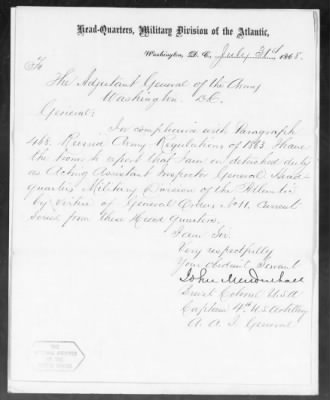 Head-Quarters, Military Division of the Atlantic,
Washington, D. C., July 31st, 1868.
To
The Adjutant General of the Army
Washington D.C.
General:
In compliance with Paragraph
468. Revised Army Regulations of 1863 I have
the honor to report that I am on detached duty
as Acting Assistant Inspector General Head-
quarters Military Division of the Atlantic
by virtue of General Orders No 11. current
series from these Head Quarters.
I am Sir
Very respectfully
Your obedient Servant
John Mendenhall
Brevet Colonel U.S.A
Captain 4th U.S. Artillery
A. A. I. General